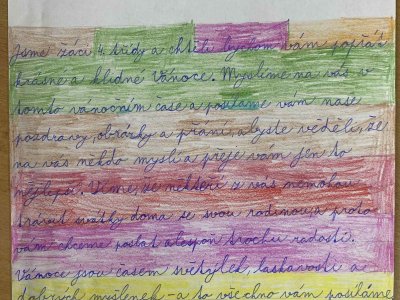 Jsme žáci 4. třídy a chtěli bychom vám popřát
krásné a klidné Vánoce. Myslíme na vás v
tomto vánočním čase a posíláme vám naše
pozdravy, obrázky a přání, abyste věděli, že
na vás někdo myslí a přeje vám jen to
nejlepší. Víme, že někteří z vás nemohou
trávit svátky doma se svou rodinou, a proto
vám chceme poslat alespoň trochu radosti.
Vánoce jsou časem světýlek, laskavosti a
dobrých myšlenek – a to všechno vám posíláme